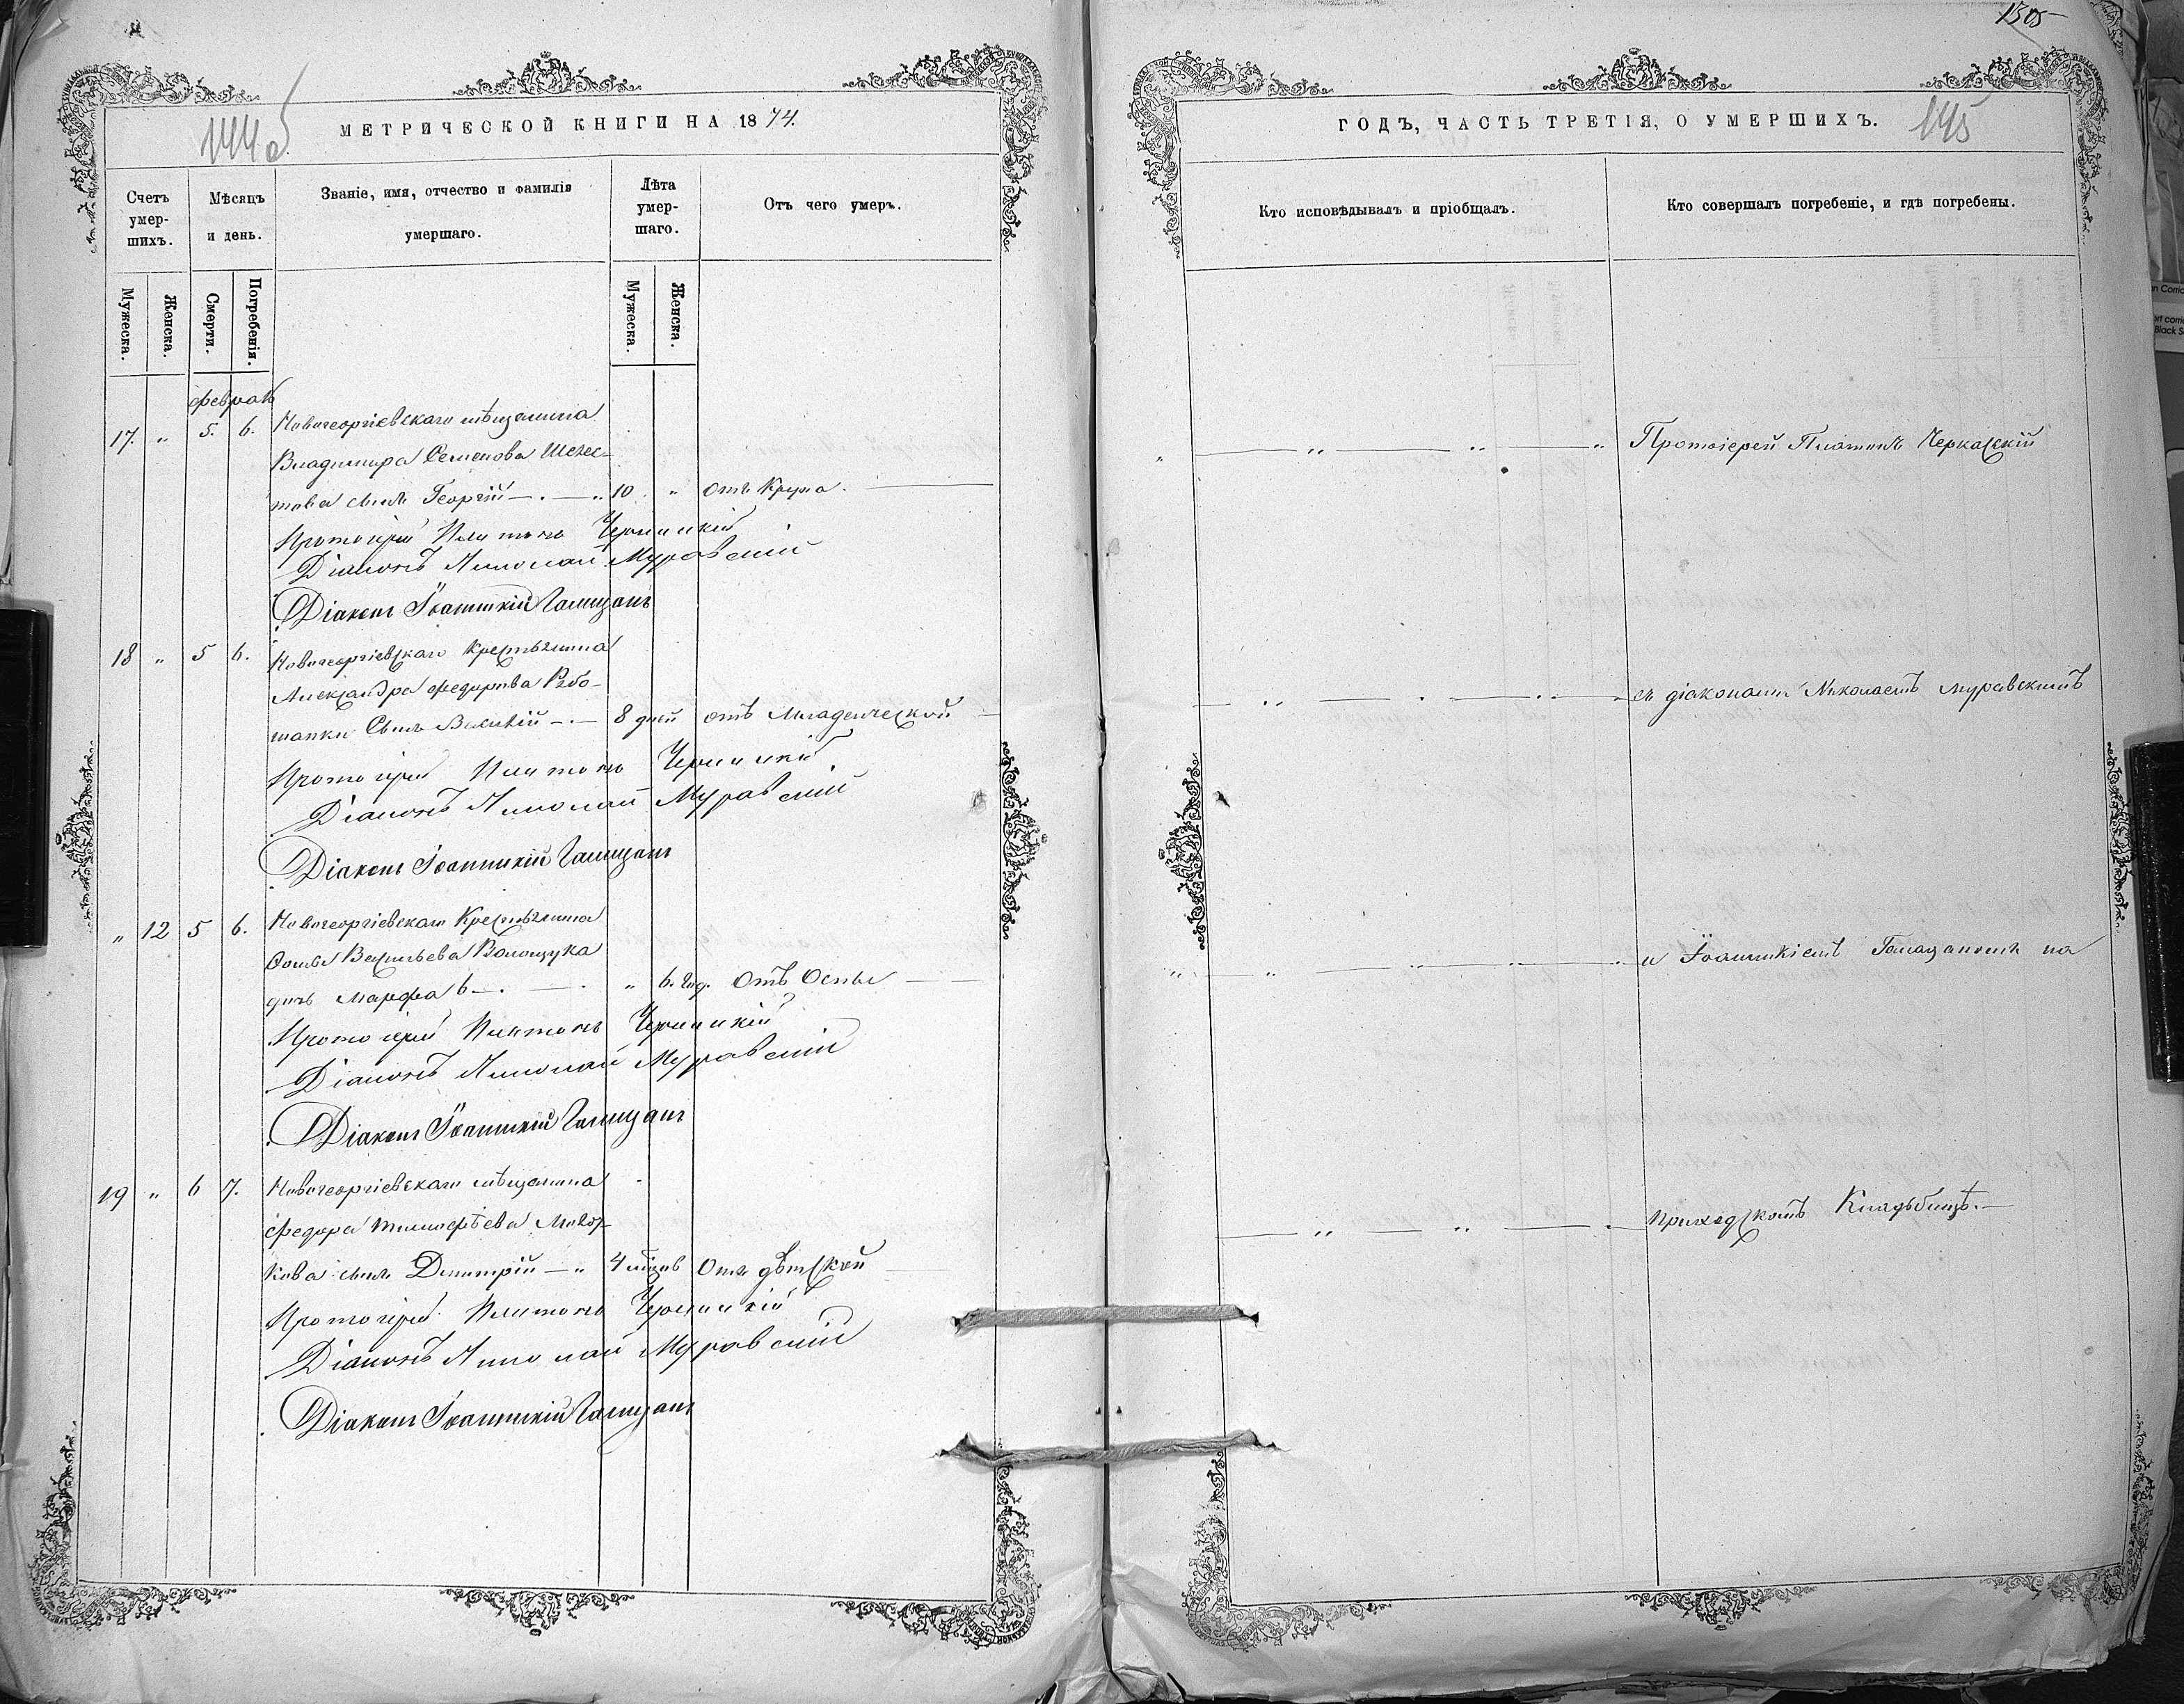 1305
144об
МЕТРИЧЕСКОЙ КНИГИ НА 1874.
ГОДЪ, ЧАСТЬ ТРЕТІЯ, О УМЕРШИХЪ.
145
Счетъ умер-шихъ.
Мѣсяцъ и день.
Званіе, имя, отчество и фамилія умершаго.
Лѣта умер-шаго.
Отъ чего умеръ.
Кто исповѣдывалъ и пріобщалъ.
Кто совершалъ погребеніе, и гдѣ погребены.
Мужеска.
Женска.
Смерти.
Погребенія.
Мужеска.
Женска.
февраль
17. " 5. 6. Новогеоргіевскаго мѣщанина
Владимира Семенова Шелес-
това сынъ Георгій 10 " отъ Крупа.
Протоіерей Платонъ Черкасскій
Діаконъ Николай Муравскій
Діаконъ Іоанникій Галицанъ
Протоіерей Платонъ Черкасскій
18 " 5 6. Новогеоргіевскаго Крестьянина
Александра Федорова Рябо-
шапки Сынъ Василій 8 дней отъ Младенческой
Протоіерей Платонъ Черкасскій
Діаконъ Николай Муравскій
Діаконъ Іоанникій Галицанъ
съ діаконами Николаемъ Муравскимъ
" 12 5 6. Новогеоргіевскаго Крестьянина
Фомы Васильева Волощука
дочь Марфа " 6. год. Отъ Оспы
Протоіерей Платонъ Черкасскій
Діаконъ Николай Муравскій
Діаконъ Іоанникій Галицанъ
и Іоанникіемъ на
19 " 6 7. Новогеоргіевскаго мѣщанина
Федора Тимофѣева
кова сынъ Димитрій 4 мѣсяцов Отъ дѣтской
Протоіерей Платонъ Черкасскій
Діаконъ Николай Муравскій
Діаконъ Іоанникій Галицанъ
приходскомъ Кладбищѣ.